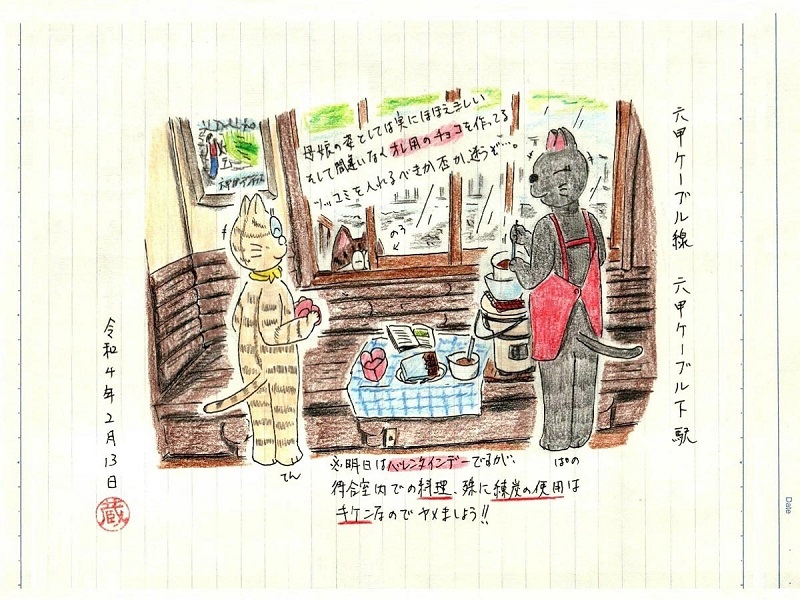 六甲ケーブル線　六甲ケーブル下駅
母娘の姿としては実にほほえましい
そして間違いなくオレ用のチョコを作ってる
ツッコミを入れるべきか否か、迷うぞ…。
のろ
てん
ぱの
※明日はバレンタインデーですが、
待合室内での料理、殊に練炭の使用は
キケンなのでヤメましょう!!
令和4年2月13日
蔵
Date